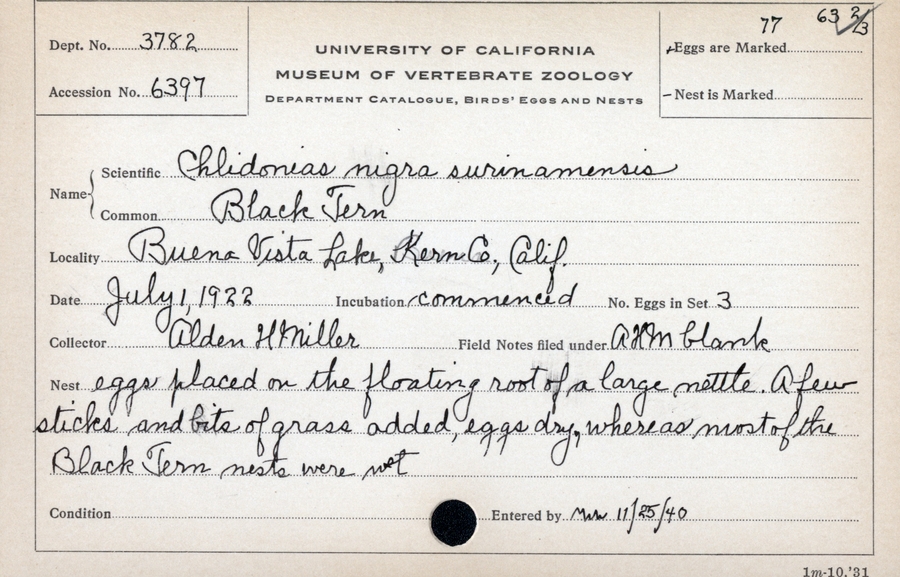 Dept. No. 3782
Accession No. 6397
UNIVERSITY OF CALIFORNIA
MUSEUM OF VERTEBRATE ZOOLOGY
DEPARTMENT CATALOGUE, BIRDS' EGGS AND NESTS
77 63 2/3
Eggs are Marked
Nest is Marked
Name Scientific Chlidonias nigra surinamensis
Common Black Tern
Locality Buena Vista Lake, Kern Co., Calif.
Date July 1, 1922 Incubation commenced No. Eggs in Set 3
Collector Alden H Miller Field Notes filed under AHM blank
Nest eggs placed on the floating root of a large nettle. A few
sticks and bits of grass added, eggs dry, whereas most of the
Black Tern nests were wet
Condition Entered by 11/25/40
1m-10,'31